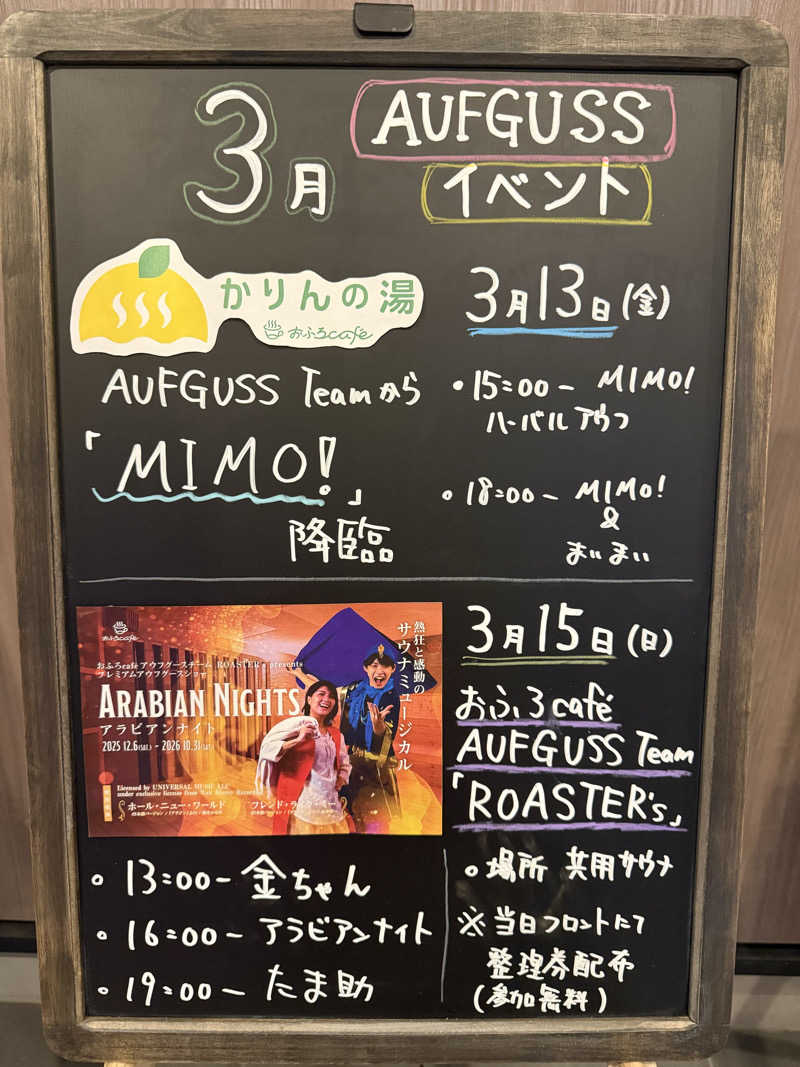 3月
AUFGUSS
イベント
かりんの湯
おふろcafé
AUFGUSS Teamから
「MIMO!」
降臨
3月13日(金)
・15:00- MIMO!
ハーバルアウフ
・18:00- MIMO!
&
まいまい
おふろcafé
おふろcafé アウフグースチーム ROASTER's presents
プレミアムアウフグースショー
ARABIAN NIGHTS
アラビアンナイト
2025 12.6(sat.) - 2026 10.31(sat.)
熱狂と感動の
サウナミュージカル
Licensed by UNIVERSAL MUSIC LLC
under exclusive license from Walt Disney Records
ホール・ニュー・ワールド
フレンド・ライク・ミー
3月15日(日)
おふろcafé
AUFGUSS Team
「ROASTER's」
・13:00-金ちゃん
・16:00-アラビアンナイト
・19:00-たま助
・場所 共用サウナ
※当日フロントにて
整理券配布
(参加無料)